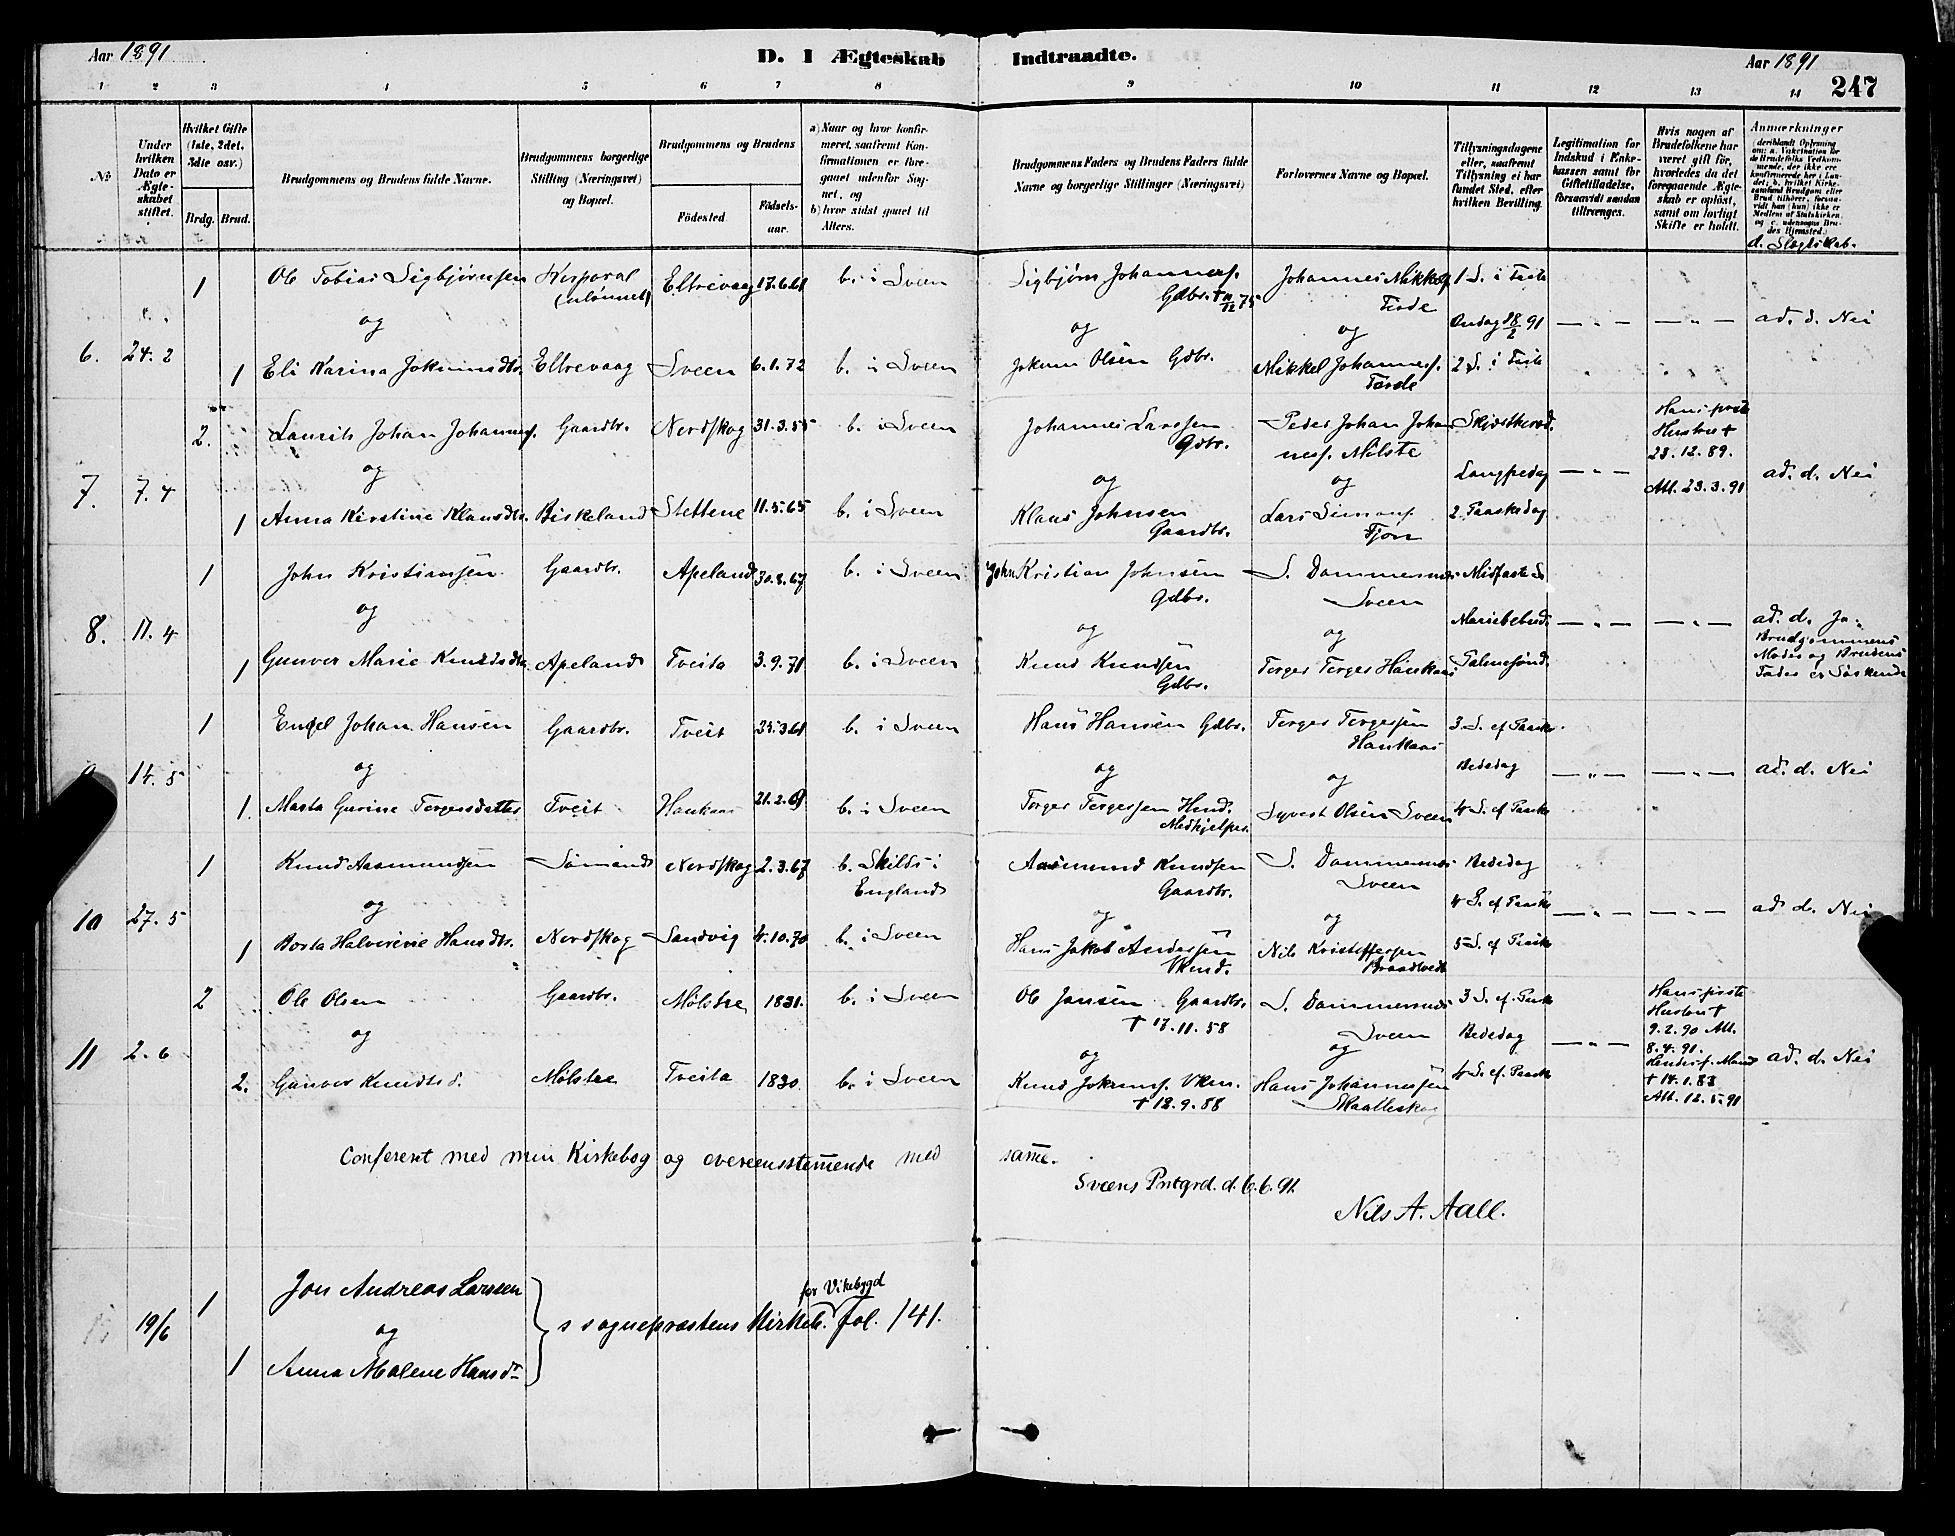 Aar 1891 D. I Ægteskab Indtraadte. Aar 1891
247
1 2 3 4 5 6 7 8 9 10 11 12 13 14
No
Under hvilken Dato er Ægteskabet stiftet.
Hvilket Gifte (1ste, 2det, 3die osv.)
Brdg. Brud.
Brudgommens og Brudens fulde Navne.
Brudgommens borgerlige Stilling (Næringsvei) og Bopæl.
Brudgommens og Brudens
Fødested. Fødselsaar.
a) Naar og hvor konfirmeret, saafremt Konfirmationen er foregaaet udenfor Sognet, og
b) hvor sidst gaaet til Alters.
Brudgommens Faders og Brudens Faders fulde Navne og borgerlige Stillinger (Næringsvei)
Forlovernes Navne og Bopæl.
Tillysningsdagene eller, saafremt Tillysning ei har fundet Sted, efter hvilken Bevilling.
Legitimation for Indskud i Enkekassen samt for Giftetilladelse, forsaavidt saadan tiltrænges.
Hvis nogen af Brudefolkene har været gift før, hvorledes da det foregaaende Ægteskab er opløst, samt om lovligt Skifte er holdt.
Anmærkninger
d. Slægtskab.
6. 24.2
1 Ole Tobias Sigbjørnsen Korporal (ulønnet) Eltrevaag 17.6.61 b. i Sveen Sigbjørn Johanness. Gdbr. † 11/12 75 Johannes Mikkels. Førde 1 S. i Faste
og og og Onsdag 18/2 91 — " — — " — ad. d. Nei
1 Eli Karina Jokumsdtr. Eltrevaag Sveen 6.1.72 b. i Sveen Jokum Olsen Gdbr. Mikkel Johanness. Førde 2 S. i Faste
7. 7.4
2. Laurits Johan Johanness. Gaardbr. Nordskog 31.3.55 b. i Sveen Johannes Larssen Gdbr. Peder Johan Johanness. Mølste Skjærthorsd. Hans første Hustru † 23.12.89.
og og og Langfredag — " — Att. 23.3.91 ad. d. Nei
1 Anna Kirstine Klausdtr. Birkeland Slettene 11.5.65 b. i Sveen Klaus Johnsen Gaardbr. Lars Simons. Fjon 2 Paaskedag
8. 17.4
1 John Kristiansen Gaardbr. Apeland 30.8.67 b. i Sveen John Kristian Johnsen Gdbr. S. Dommersnes Sveen Midfaste S.
og og og Mariebebud. — " — — " — ad. d. Ja. Brudgommens Moder og Brudens Fader er Søskende
1 Gunvor Marie Knudsdtr. Apeland Tveita 3.9.71 b. i Sveen Knud Knudsen Gdbr. Torger Torgers Haukaas Palmesønd.
14.5
1 Engel Johan Hansen Gaardbr. Tveit 25.3.61 b. i Sveen Hans Hansen Gdbr. Torger Torgersen Haukaas 3 S. ef. Paaske
og og og Bededag — " — — " — ad. d. Nei
1. Marta Gurine Torgersdatter Tveit Haukaas 21.2.69 b. i Sveen Torger Torgersen Hmd. Medhjelper. Syvert Olsen Sveen 4 S. ef Paaske
10 27.5
1 Knud Aasmundsen Sømand Nordskog 2.3.67 b. Skilds i England Aasmund Knudsen Gaardbr. S. Dommersnes Sveen Bededag
og og og 4 S. ef Paaske — " — — " — ad. d. Nei
1 Borta Halverine Hansdtr. Nordskog Sandvig 4.10.70 b. i Sveen Hans Jakob Andersen Nils Kristoffersen Braadtvedt 5 S. ef Paaske
11 2.6
2 Ole Olsen Gaardbr. Mølstre 1831. b. i Sveen Ole Jansen Gaardbr. † 17.11.58 S. Dommersnes Sveen 3 S. ef. Paaske Hans første Hustru † 9.2.90 Att. 8.4.91.
og og og Bededag — " — ad. d. Nei
2. Gunvor Knudtsd. Mølstre Tveita 1830. b. i Sveen Knud Jokums. † 12.9.58 Hans Johannesen 4 S. ef. Paaske Hendes f. Mand † 14.1.83 Att. 12.5.91
Conferert med min Kirkebog og overensstemmende med samme.
Sveens Prstgrd. d. 6.6.91.
Nils A. Aall.
19/6
1 Jon Andreas Larssen
og s sognepræstens Kirkeb. for Vikebygd fol. 141.
1 Anna Malene Hansdtr